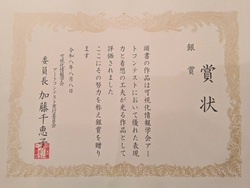 賞状
銀賞
頭書の作品は可視化情報学会アー
トコンテストにおいて優れた表現
力と着想の工夫が光る作品として
評価されました
ここにその努力を称え銀賞を贈り
ます
令和八年八月八日
可視化情報学会
アートコンテスト実行委員会
委員長 加藤千恵子